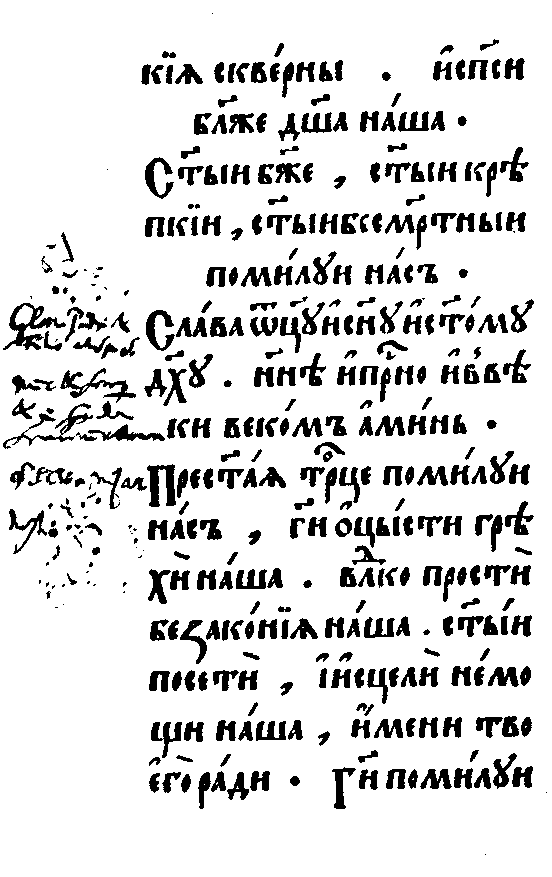 кїѧ скве́рны . и҆сп҃си
бл҃же дш҃а на́ша .
Ст҃ыи бж҃е , ст҃ыи крѣ
пкїи , ст҃ыи бесм҃ртныи
поми́лꙋи на́съ .
Сла́ва ѿц҃ꙋ и҆ сн҃ꙋ и҆ ст҃о́мꙋ
дх҃ꙋ . и҆н҃ѣ и҆ пр҇но и҆ в̾вѣ
ки веко́мъ а҆ми́нь .
Прест҃а́ѧ тр҇оце поми́лꙋи
на́съ , гй҃ ѻ҆цы́сти грѣ
хѝ на́ша . влд҇ко простѝ
беꙁако́нїѧ на́ша . ст҃ы́и
посетѝ , і҆ и҆сцелѝ не́мо
щи на́ша , и҆́мени тво
є҆го̀ ра́ди . Гй҃ поми́лꙋи